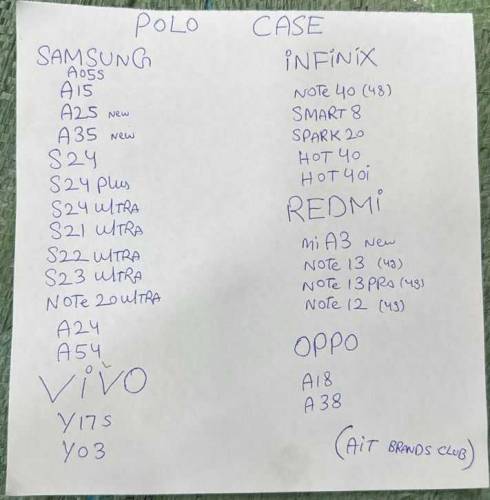 POLO CASE
SAMSUNG
A05s
A15
A25 New
A35 New
S24
S24 Plus
S24 ultRA
S21 ultRA
S22 ultRA
S23 ultRA
NOTE 20 ultRA
A24
A54
ViVO
Y17s
Y03
iNFiNiX
NOTE 40 (4G)
SMART 8
SPARK 20
HOT 40
HOT 40i
REDMi
Mi A3 New
NOTE 13 (4G)
NOTE 13 PRO (4G)
NOTE 12 (4G)
OPPO
A18
A38
(AiT BRANDS CLUB)